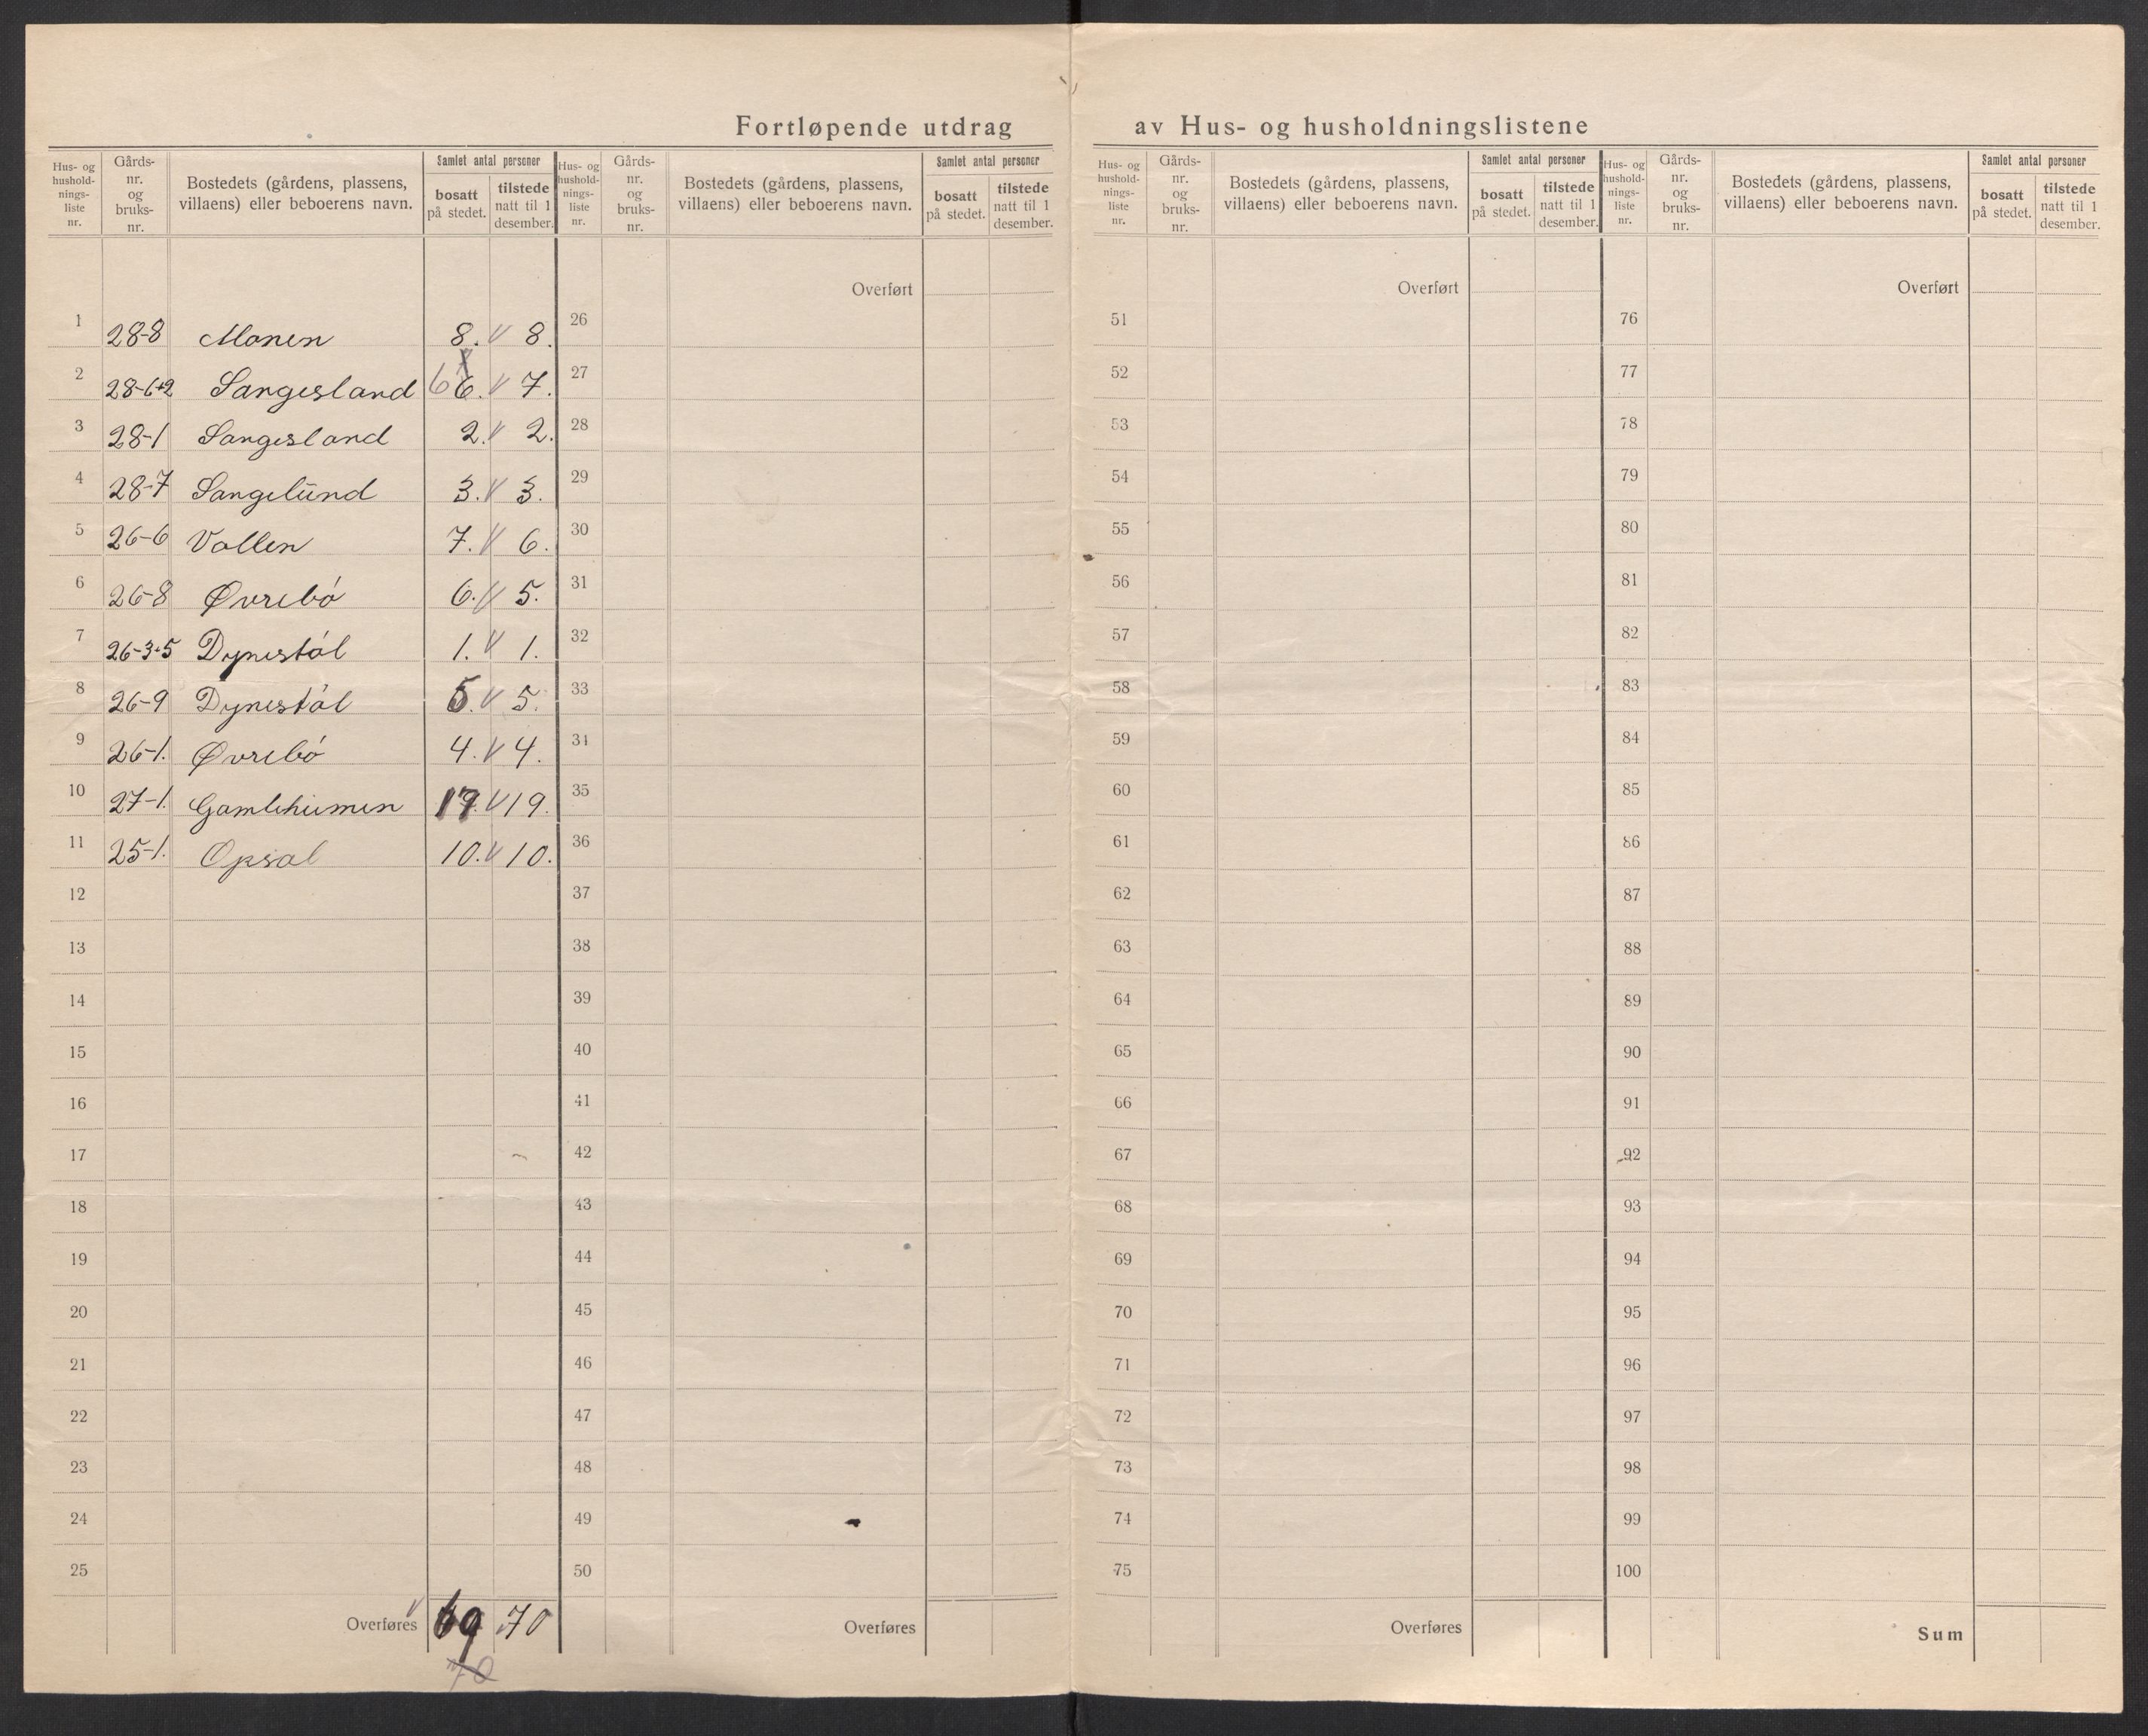 Fortløpende utdrag av Hus- og husholdningslistene
Hus- og hushold- nings- liste nr. Gårds- nr. og bruks- nr. Bostedets (gårdens, plassens, villaens) eller beboerens navn. Samlet antal personer bosatt på stedet. tilstede natt til 1 desember.
Hus- og hushold- nings- liste nr. Gårds- nr. og bruks- nr. Bostedets (gårdens, plassens, villaens) eller beboerens navn. Samlet antal personer bosatt på stedet. tilstede natt til 1 desember.
Hus- og hushold- nings- liste nr. Gårds- nr. og bruks- nr. Bostedets (gårdens, plassens, villaens) eller beboerens navn. Samlet antal personer bosatt på stedet. tilstede natt til 1 desember.
Hus- og hushold- nings- liste nr. Gårds- nr. og bruks- nr. Bostedets (gårdens, plassens, villaens) eller beboerens navn. Samlet antal personer bosatt på stedet. tilstede natt til 1 desember.
1 28-8 Monen 8. 8.
2 28-6+2 Sangesland 6 6. 7.
3 28-1 Sangesland 2. 2.
4 28-7 Sangelund 3. 3.
5 26-6 Vollen 7. 6.
6 26-8 Øvrebó 6. 5.
7 26-3+5 Dynestól 1. 1.
8 26-9 Dynestól 5. 5.
9 26-1. Øvrebó 4. 4.
10 27-1. Gamleheimen 17. 19.
11 25-1. Opsal 10. 10.
12
13
14
15
16
17
18
19
20
21
22
23
24
25
Overføres 69 70
70
Overført
26
27
28
29
30
31
32
33
34
35
36
37
38
39
40
41
42
43
44
45
46
47
48
49
50
Overføres
Overført
51
52
53
54
55
56
57
58
59
60
61
62
63
64
65
66
67
68
69
70
71
72
73
74
75
Overføres
Overført
76
77
78
79
80
81
82
83
84
85
86
87
88
89
90
91
92
93
94
95
96
97
98
99
100
Sum